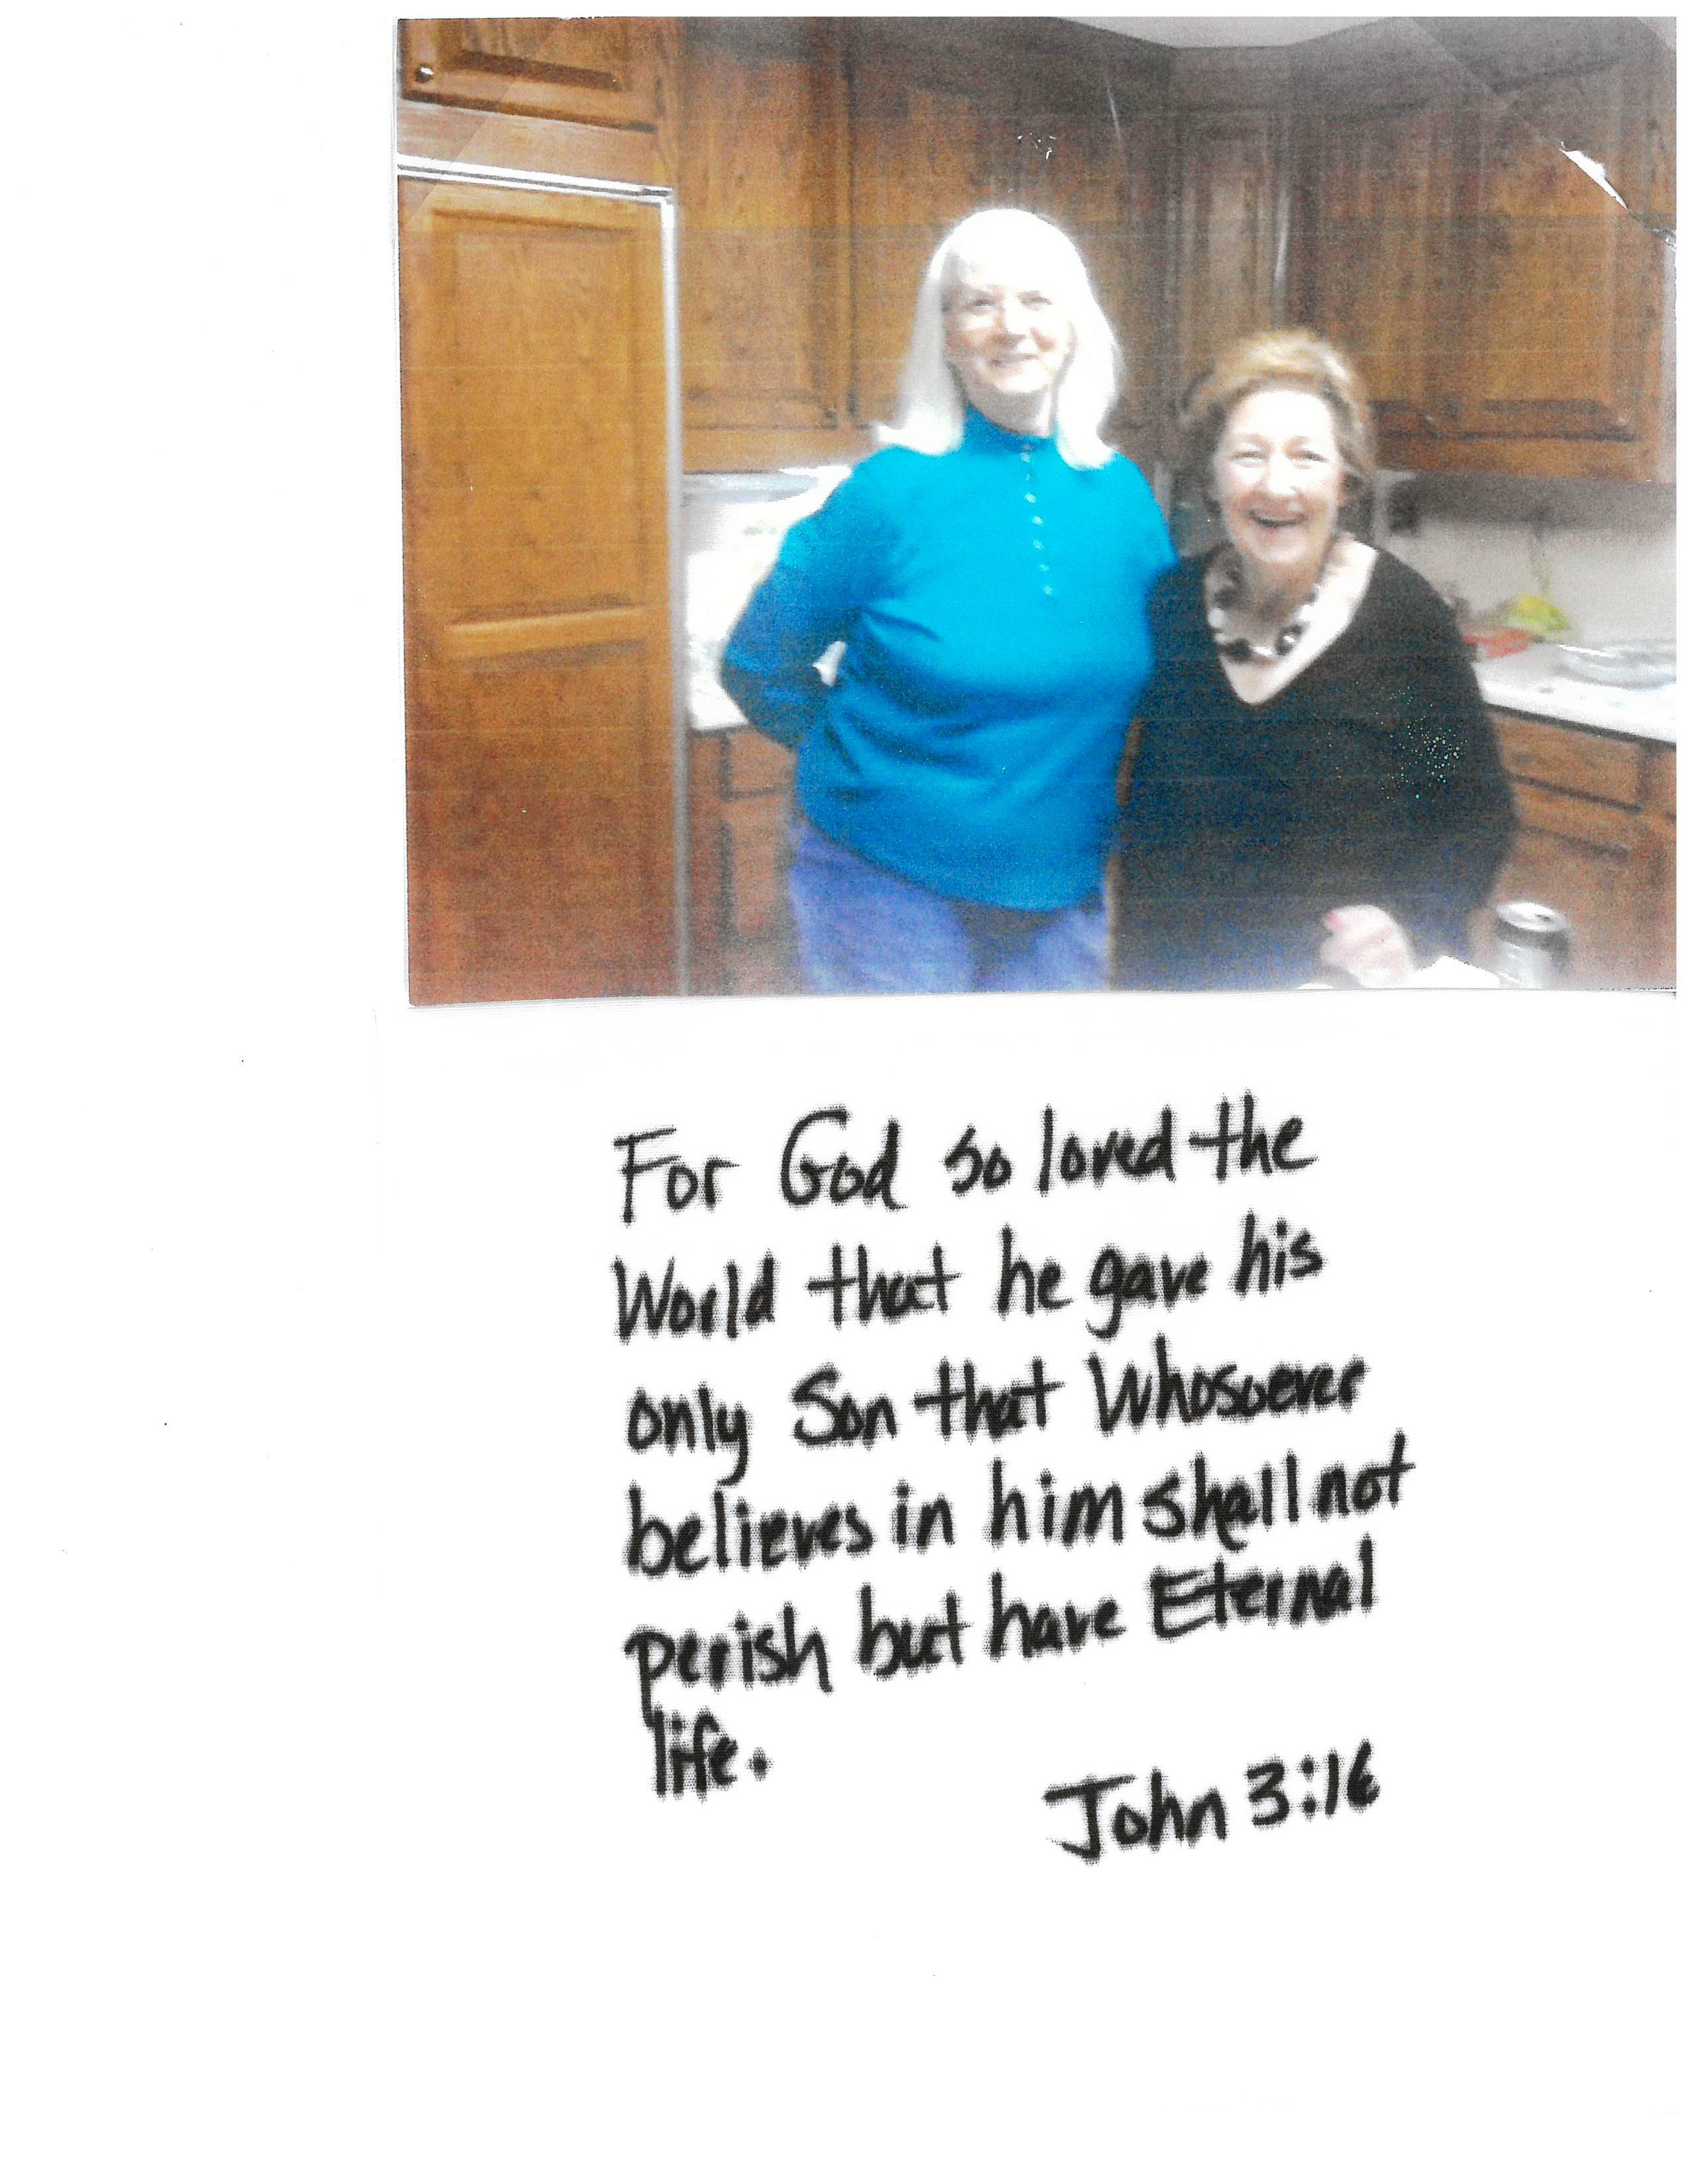 For God so loved the
World that he gave his
only Son that Whosoever
believes in him shall not
perish but have Eternal
life.
John 3:16